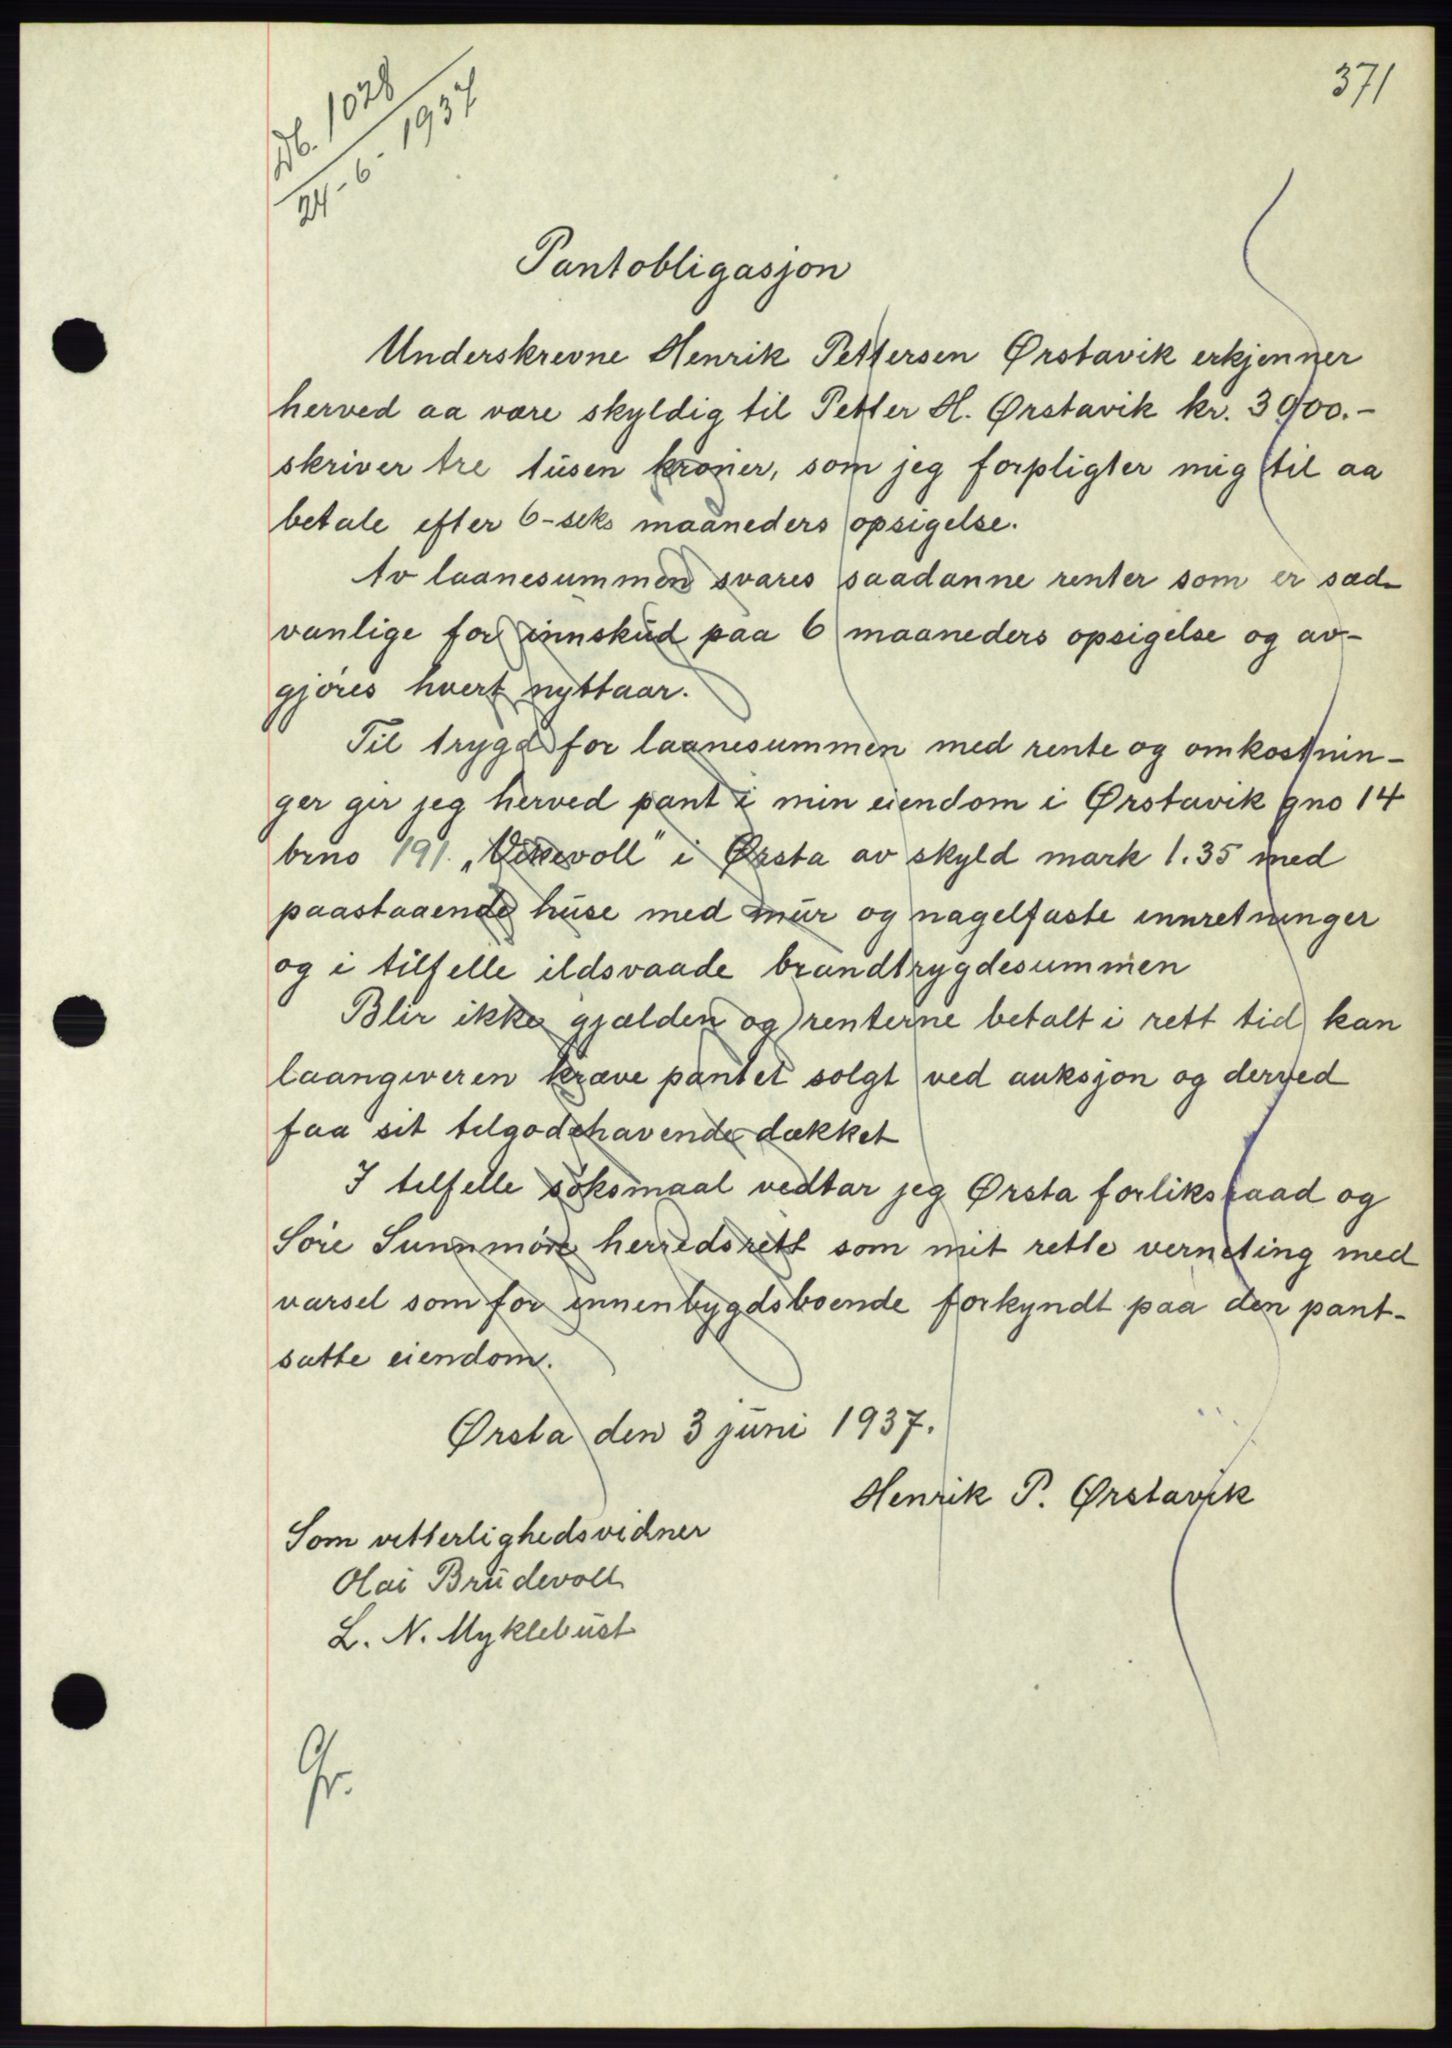 371
Db. 1028
24-6-1937
Pantobligasjon
Underskrevne Henrik Pettersen Ørstavik erkjenner
herved aa være skyldig til Petter H. Ørstavik kr. 3000.-
skriver tre tusen kroner, som jeg forpligter mig til aa
betale efter 6-seks maaneders opsigelse.
Av laanesummen svares saadanne renter som er sæd-
vanlige for innskud paa 6 maaneders opsigelse og av-
gjøres hvert nyttaar.
Til trygd for laanesummen med rente og omkostnin-
ger gir jeg herved pant i min eiendom i Ørstavik gno 14
brno 191. „Vikevoll" i Ørsta av skyld mark 1.35 med
paastaaende huse med mur og nagelfaste innretninger
og i tilfelle ildsvaade brandtrygdesummen
Blir ikke gjælden og renterne betalt i rett tid kan
laangiveren kræve pantet solgt ved auksjon og derved
faa sit tilgodehavende dækket
I tilfelle søksmaal vedtar jeg Ørsta forliksraad og
Søre Sunnmøre herredsrett som mit rette verneting med
varsel som for innenbygdsboende forkyndt paa den pant-
satte eiendom.
Ørsta den 3 juni 1937.
Henrik P. Ørstavik
Som vitterlighedsvidner
Olai Brudevoll
L. N. Myklebust
Gr.